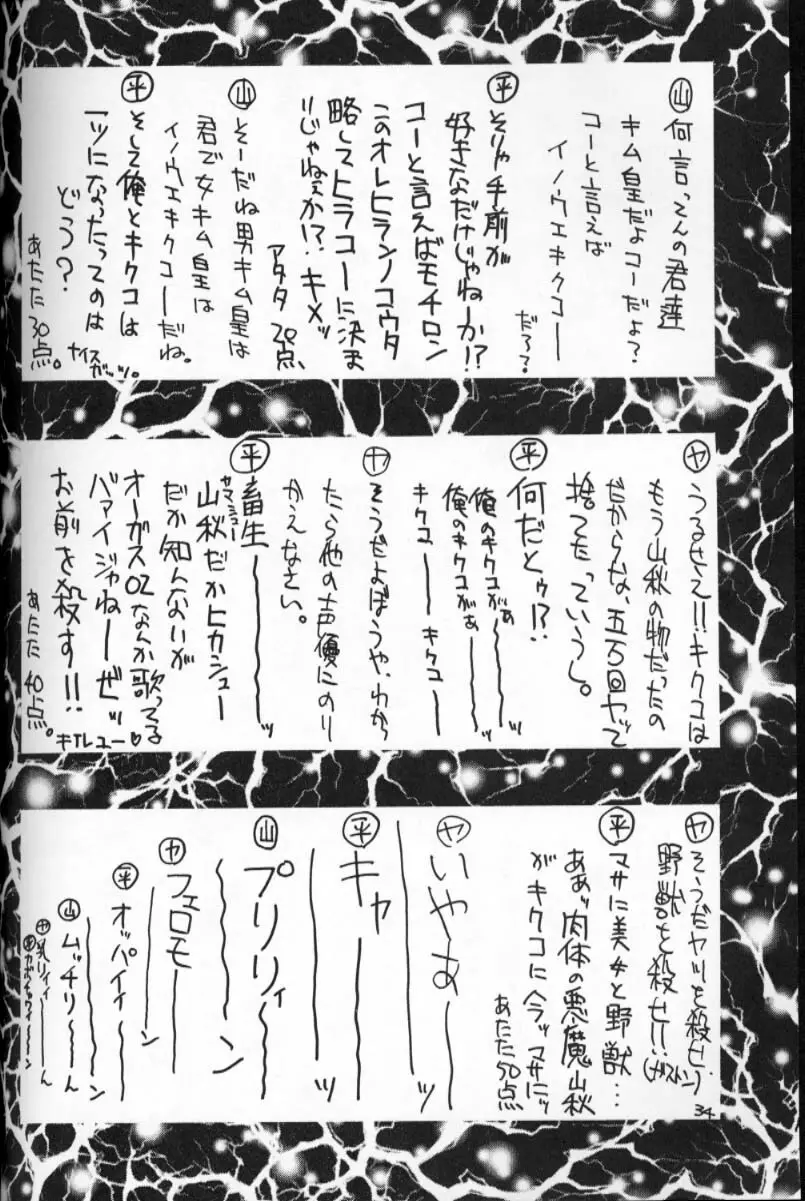 山 何言ってんの君達
キム皇だよコーだよ?
コーと言えば
イノウエキクコー
だろ?
平 そりゃ手前が
好きなだけじゃねーか!?
コーと言えばモチロン
このオレヒラノコウタ
略してヒラコーに決ま
リじゃねぇか!?キメッ
アタタ 20点、
山 そーだね男キム皇は
君で女キム皇は
イノウエキクコーだね。
平 そして俺とキクコは
一ツになったってのは
どう?
ナイスガッツ。
あたた 30点。
ヤ うるせえ!!キクコは
もう山秋の物だったの
だからな、五万回ヤッて
捨てたっていうし。
平 何だとゥ!?
俺のキクコがぁ〜〜ッ
俺のキクコがぁ〜〜ッ
キクコー キクコー
ヤ そうだよぼうや、わかっ
たら他の声優にのり
かえなさい。
平 畜生〜〜〜ッ
山秋だかヒカシュー
ヤマシュー
だか知んないが
オーガス02なんか歌ってる
バァイジャねーぜッ
お前を殺す!!
キTレユー♡
あたた 40点。
ヤ そうだヤツを殺せ、
野獣を殺せ!!
(ガストン)
平 マサに美女と野獣…
ああッ肉体の悪魔山秋
がキクコに今ッマサにッ
あたた50点
ヤ いやあーーッ
平 キャーーッ
山 プリリィ〜〜ン
ヤ フェロモーーン
平 オッパイィ〜〜ン
山 ムッチリ〜〜ん
ヤ 乳リィィーーん
34